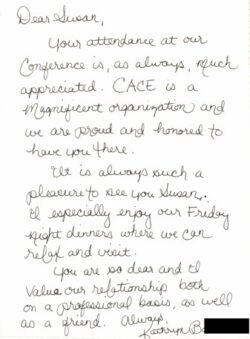 Dear Susan,
Your attendance at our
Conference is, as always, much
appreciated. CACE is a
magnificent organization and
we are proud and honored to
have you there.
It is always such a
pleasure to see you Susan.
I especially enjoy our Friday
night dinners where we can
relax and visit.
You are so dear and I
value our relationship both
on a professional basis, as well
as a friend. Always,
Kathryn